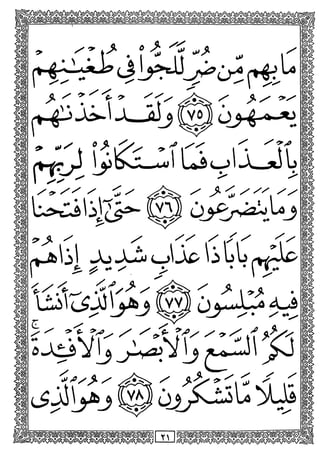 مَا بِهِم مِّن ضُرٍّ لَّلَجُّوا۟ فِى طُغْيَـٰنِهِمْ
يَعْمَهُونَ ٧٥ وَلَقَدْ أَخَذْنَـٰهُم
بِٱلْعَذَابِ فَمَا ٱسْتَكَانُوا۟ لِرَبِّهِمْ
وَمَا يَتَضَرَّعُونَ ٧٦ حَتَّىٰٓ إِذَا فَتَحْنَا
عَلَيْهِم بَابًا ذَا عَذَابٍ شَدِيدٍ إِذَا هُمْ
فِيهِ مُبْلِسُونَ ٧٧ وَهُوَ ٱلَّذِىٓ أَنشَأَ
لَكُمُ ٱلسَّمْعَ وَٱلْأَبْصَـٰرَ وَٱلْأَفْـِٔدَةَ ۚ
قَلِيلًا مَّا تَشْكُرُونَ ٧٨ وَهُوَ ٱلَّذِى
٢١